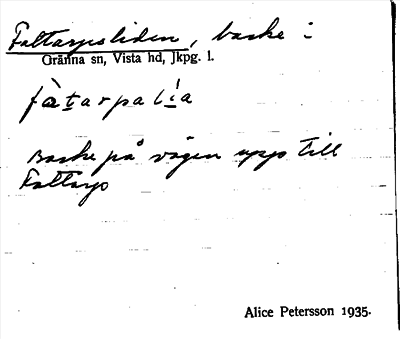 Faltarpsliden, backe :
Gränna sn, Vista hd, Jkpg. l.
fàtarpalía
Backe på vägen upp till
Faltarp
Alice Petersson 1935.